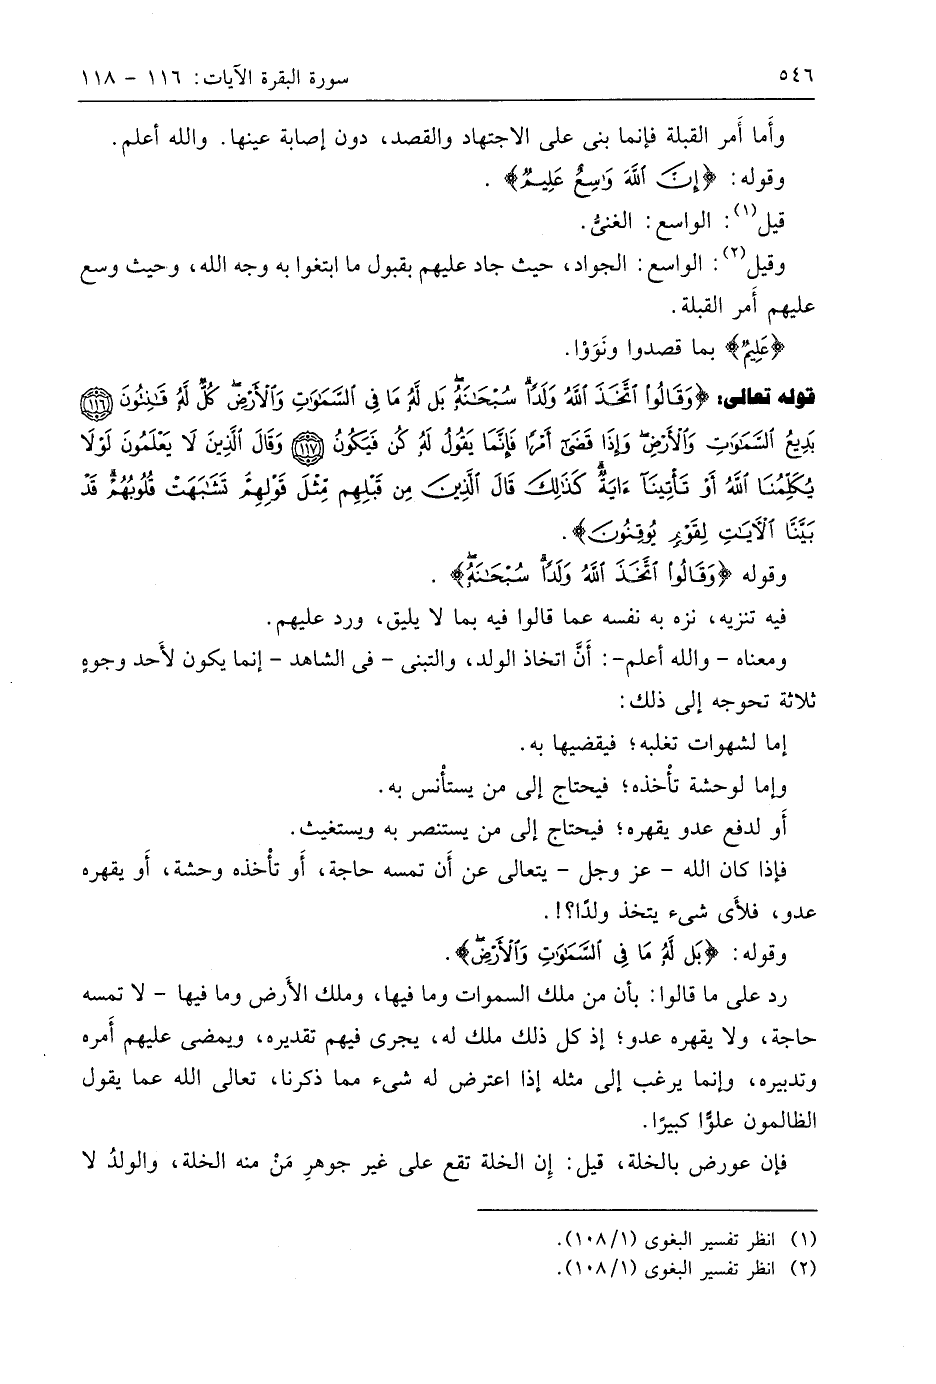 ٥٤٦ سورة البقرة الآيات: ١١٦ - ١١٨
وأَما أَمر القبلة فإنما بنى على الاجتهاد والقصد، دون إصابة عينها. والله أعلم.
وقوله: ﴿إِنَّ ٱللَّهَ وَٰسِعٌ عَلِيمٌ﴾ .
قيل(١): الواسع: الغنىُّ.
وقيل(٢): الواسع: الجواد، حيث جاد عليهم بقبول ما ابتغوا به وجه الله، وحيث وسع
عليهم أَمر القبلة.
﴿عَلِيمٌ﴾ بما قصدوا ونَوَوْا.
قوله تعالى: ﴿وَقَالُوا۟ ٱتَّخَذَ ٱللَّهُ وَلَدًاۗ سُبْحَٰنَهُۥۖ بَل لَّهُۥ مَا فِى ٱلسَّمَٰوَٰتِ وَٱلْأَرْضِۖ كُلٌّ لَّهُۥ قَٰنِتُونَ ١١٦
بَدِيعُ ٱلسَّمَٰوَٰتِ وَٱلْأَرْضِۖ وَإِذَا قَضَىٰٓ أَمْرًا فَإِنَّمَا يَقُولُ لَهُۥ كُن فَيَكُونُ ١١٧ وَقَالَ ٱلَّذِينَ لَا يَعْلَمُونَ لَوْلَا
يُكَلِّمُنَا ٱللَّهُ أَوْ تَأْتِينَآ ءَايَةٌۗ كَذَٰلِكَ قَالَ ٱلَّذِينَ مِن قَبْلِهِم مِّثْلَ قَوْلِهِمْۘ تَشَٰبَهَتْ قُلُوبُهُمْۗ قَدْ
بَيَّنَّا ٱلْءَايَٰتِ لِقَوْمٍ يُوقِنُونَ﴾.
وقوله ﴿وَقَالُوا۟ ٱتَّخَذَ ٱللَّهُ وَلَدًاۗ سُبْحَٰنَهُۥۖ﴾ .
فيه تنزيه، نزه به نفسه عما قالوا فيه بما لا يليق، ورد عليهم.
ومعناه - والله أعلم-: أَنَّ اتخاذ الولد، والتبنى - فى الشاهد - إنما يكون لأَحد وجوهٍ
ثلاثة تحوجه إلى ذلك:
إما لشهوات تغلبه؛ فيقضيها به.
وإما لوحشة تأْخذه؛ فيحتاج إلى من يستأْنس به.
أَو لدفع عدو يقهره؛ فيحتاج إلى من يستنصر به ويستغيث.
فإذا كان الله - عز وجل - يتعالى عن أَن تمسه حاجة، أَو تأْخذه وحشة، أَو يقهره
عدو، فلأَى شىء يتخذ ولدًا؟!.
وقوله: ﴿بَل لَّهُۥ مَا فِى ٱلسَّمَٰوَٰتِ وَٱلْأَرْضِۖ﴾.
رد على ما قالوا: بأن من ملك السموات وما فيها، وملك الأَرض وما فيها - لا تمسه
حاجة، ولا يقهره عدو؛ إذ كل ذلك ملك له، يجرى فيهم تقديره، ويمضى عليهم أَمره
وتدبيره، وإنما يرغب إلى مثله إذا اعترض له شىء مما ذكرنا، تعالى الله عما يقول
الظالمون علوًّا كبيرًا.
فإن عورض بالخلة، قيل: إِن الخلة تقع على غير جوهرِ مَنْ منه الخلة، والولدُ لا
(١) انظر تفسير البغوى (١/١٠٨).
(٢) انظر تفسير البغوى (١/١٠٨).